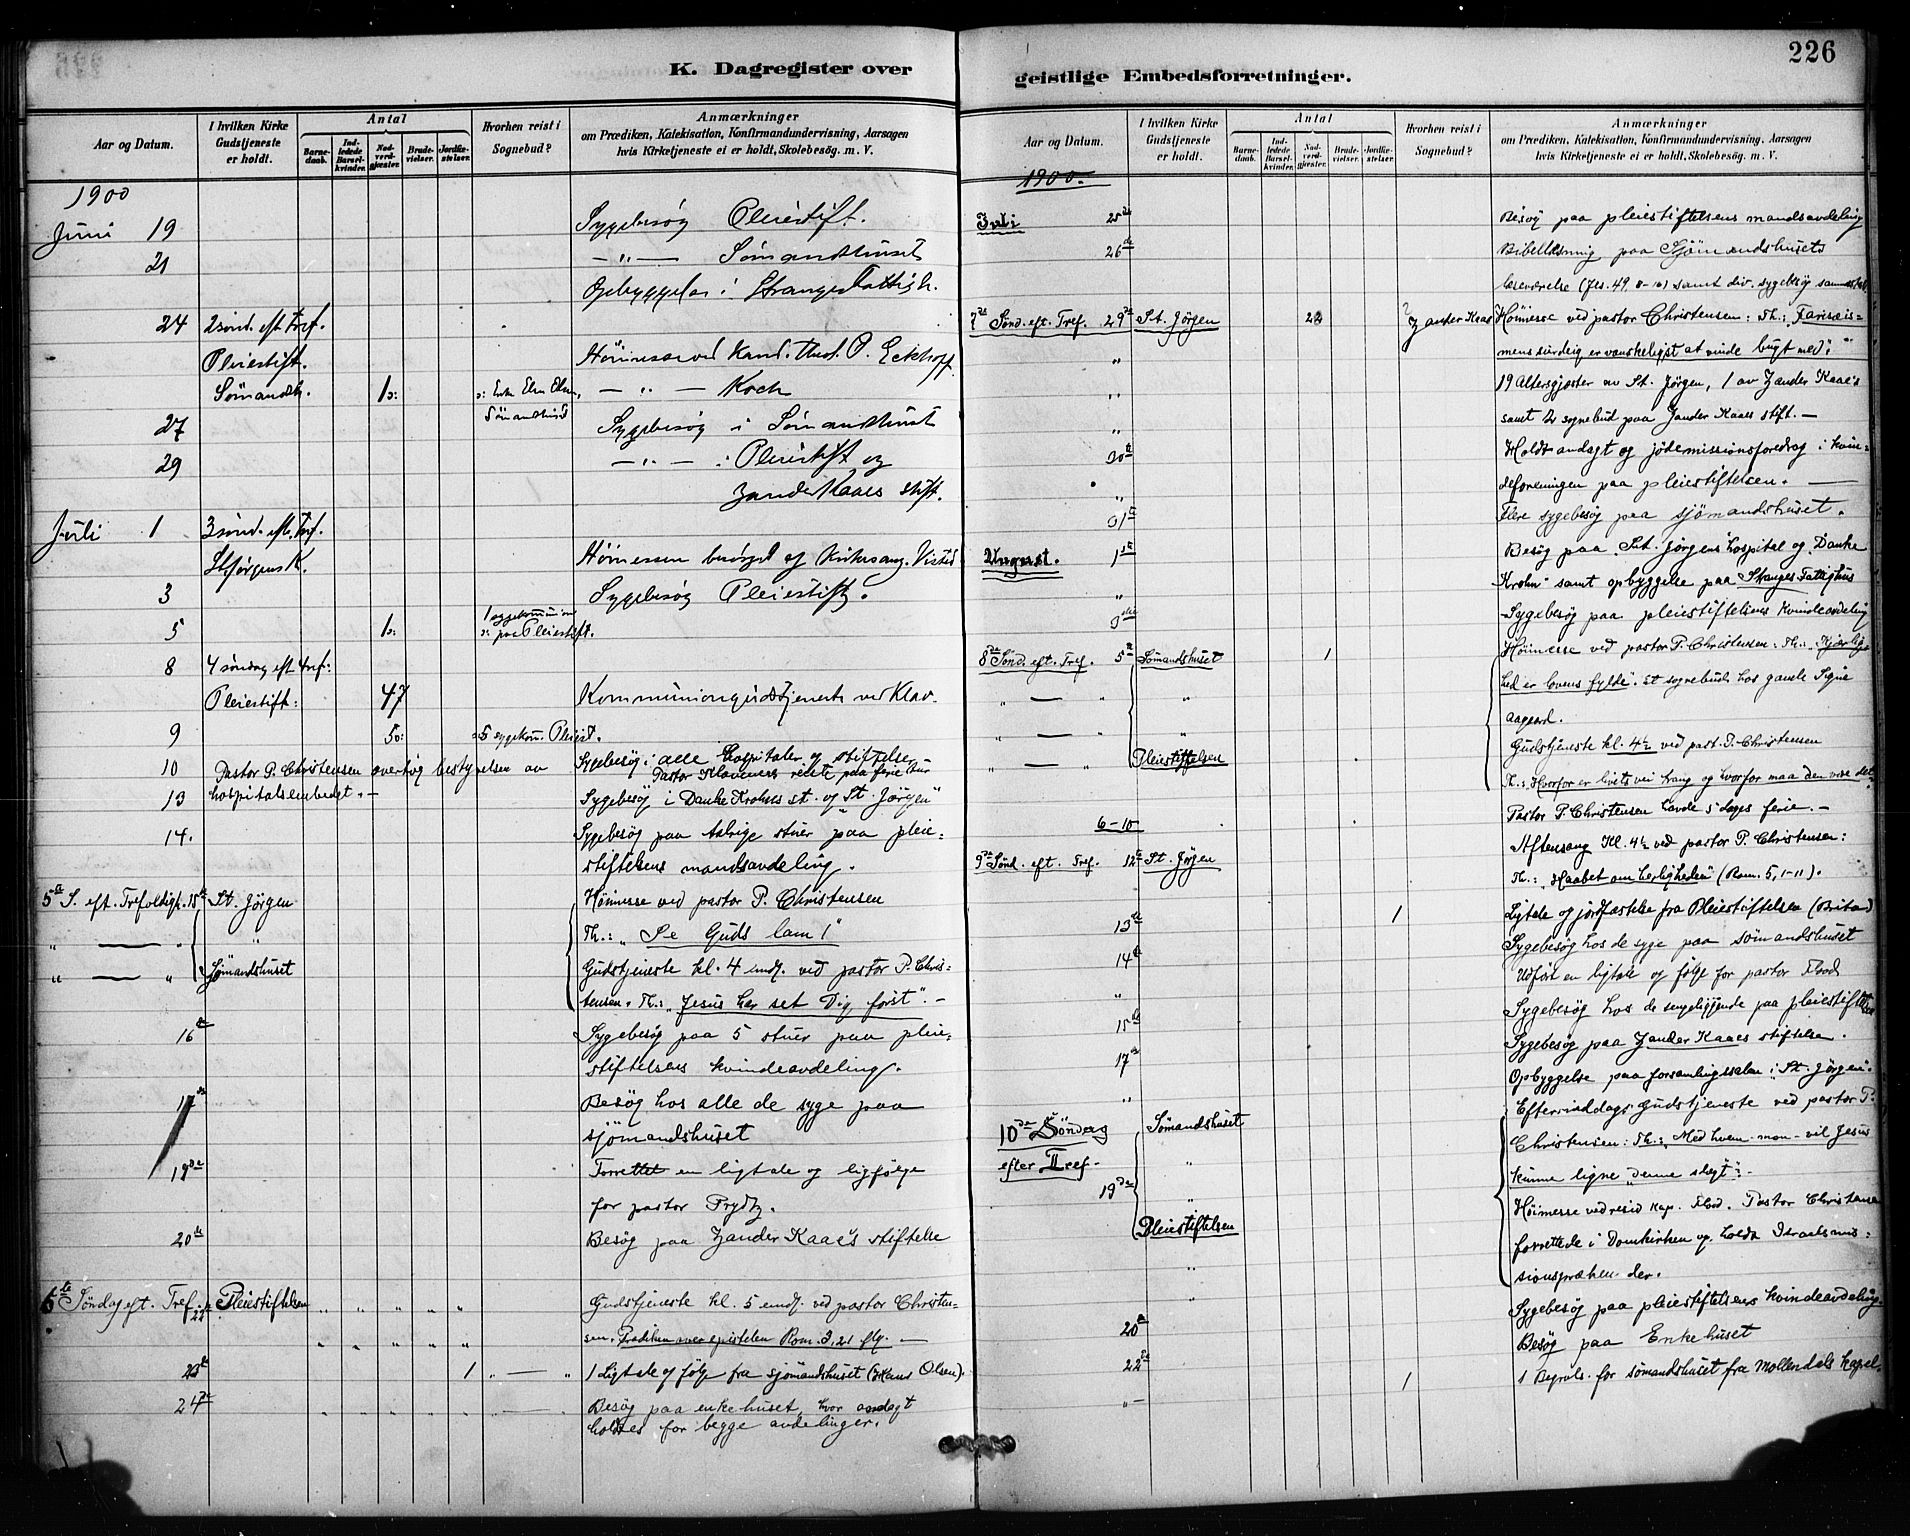 226
K. Dagregister over
geistlige Embedsforretninger.
Aar og Datum.
I hvilken Kirke Gudstjeneste er holdt.
Antal
Barne-daab.
Ind-ledede Barsel-kvinder.
Nad-verd-gjæster.
Brude-vielser.
Jordfæ-stelser.
Hvorhen reist i Sognebud?
Anmærkninger
om Prædiken, Katekisation, Konfirmandundervisning, Aarsagen
hvis Kirketjeneste ei er holdt, Skolebesög. m. V.
1900
Juni 19 Sygebesøg Pleiestift.
21 — " — Sømandhuset
Opbyggelse i Stranges Fattigh.
24 2 sønd. eft Tref.
Pleiestift. Høimesse ved Kand. theol. P. Eckhoff
Sømandsh. 1 — " — Koch
Sømandhuset
27 Sygebesøg i Sømandhuset
29 — " — i Pleiestift og
Zander Kaaes stift.
Juli 1 3 sønd. eft. Tref.
St. Jørgens K. Høimessen besørget af Kirkesang. Visted
3 Sygebesøg Pleiestift.
5 1 1 sygekommunion
paa Pleiestift.
8 4 søndag eft Tref:
Pleiestift: 47 Kommuniongudstjeneste ved Klav.
9 5 5 sygekom. Pleiest. Sygebesøg i alle hospitaler og stiftelser
10 Pastor P. Christensen overtog bestyrelsen av Pastor Klaveness reiste paa ferie
13 hospitalsembedet. — Sygebesøg i Danke Krohns st. og "St. Jørgen"
14. Sygebesøg paa talrige stuer paa pleie-
stiftelsens mandsavdeling.
5te S. eft. Trefoldigh. 15de St. Jørgen Høimesse ved pastor P. Christensen
" — " " Th.: "Se Guds lam!"
" — " Sjømandshuset Gudstjeneste kl. 4 emdg. ved pastor P. Chris-
tensen. Th.: "Jesus har set Dig først". —
16de Sygebesøg paa 5 stuer paa pleie-
stiftelsens kvindeavdeling.
17de Besøg hos alle de syge paa
sjømandshuset
19de Forrettet en ligtale og ligfølge
for pastor Prydtz.
20de Besøg paa Zander Kaae's stiftelse
6te Søndag eft. Tref. 22de Pleiestiftelsen " " " " " Gudstjeneste kl. 5 emdg. ved pastor Christen-
sen. Prædiken over epistelen Rom. 3, 21 flg. —
23de 1 " — " 1 Ligtale og følge fra sjømandshuset (Hans Olsen).
24de Besøg paa enkehuset, hvor andagt
holdtes for begge avdelinger.
Aar og Datum.
I hvilken Kirke Gudstjeneste er holdt.
Antal
Barne-daab.
Ind-ledede Barsel-kvinder.
Nad-verd-gjæster.
Brude-vielser.
Jordfæ-stelser.
Hvorhen reist i Sognebud?
Anmærkninger
om Prædiken, Katekisation, Konfirmandundervisning, Aarsagen
hvis Kirketjeneste ei er holdt, Skolebesög. m. V.
1900.
Juli 25de Besøg paa pleiestiftelsens mandsavdeling
26de Bibellæsning paa Sjømandshusets
læseværelse (Jes. 49, 8-10) samt div. sygebesøg sammesteds
7de Sønd. eft. Tref. 29de St. Jørgen 22 Zander Kaae Høimesse ved pastor Christensen: Th.: "Farisæis-
mens surdeig er vanskeligst at vinde bugt med."
19 Altersgjæster av St. Jørgen, 1 av Zander Kaae's
samt 2 sognebud paa Zander Kaaes stift. —
30te Holdt andagt og jødemissionsforedrag i kvin-
deforeningen paa pleiestiftelsen. —
31te Flere sygebesøg paa sjømandshuset.
August. 1ste Besøg paa St. Jørgens hospital og Danke
Krohn samt opbyggelse paa Stranges Fattighus
3die Sygebesøg paa pleiestiftelsens kvindeavdeling
8de Sønd. eft. Tref. 5te Sømandshuset 1 Høimesse ved pastor P. Christensen: Th.: "Kjærlig-
hed er lovens fylde". Et sognebud hos gamle Signe
Aagaard.
Gudstjeneste kl. 4½ ved past. P. Christensen
" — " Pleiestiftelsen Th.: Hvorfor er livets vei trang og hvorfor maa den være det.
6-10 Pastor P. Christensen havde 5 dages ferie. —
9de Sønd. eft. Tref. 12te St. Jørgen Aftensang Kl. 4½ ved pastor P. Christensen:
Th.: "Haabet om herligheden" (Rom. 5, 1-11).
13de 1 Ligtale og jordfæstelse fra Pleiestiftelsen (Brita)
14de Sygebesøg hos de syge paa sømandshuset
" Udført en ligtale og følge for pastor Flood
15de Sygebesøg hos de sengeliggende paa pleiestiftelsen
17de Sygebesøg paa Zander Kaaes stiftelse.
" Opbyggelse paa forsamlingssalen i "St. Jørgen".
10de Søndag Sømandshuset Eftermiddags Gudstjeneste ved pastor P.
efter Tref. Christensen: Th.: Med hvem mon vil Jesus
kunne ligne "denne slegt".
19de Pleiestiftelsen Høimesse ved resid. kap. Flood. Pastor Christensen
forrettede i Domkirken og holdt Israelsmis-
sionsprækener der.
20de Sygebesøg paa pleiestiftelsens kvindeavdeling.
22de Besøg paa Enkehuset
" — 1 1 Begravls. for sømandshuset fra Møllendals kapel.